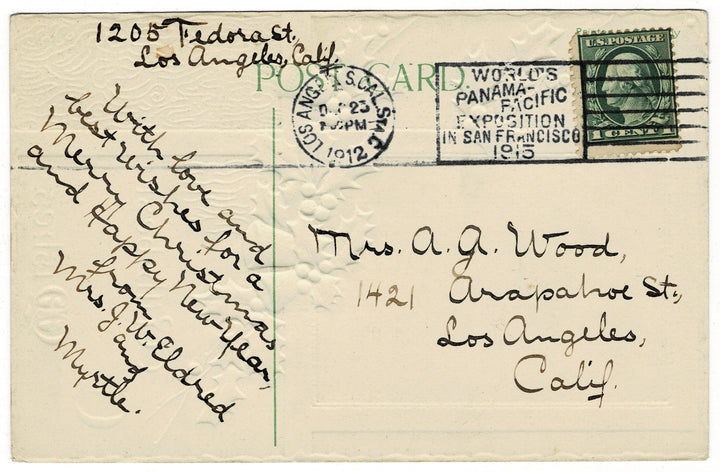 1205 Fedora St.
Los Angeles, Calif.
POST CARD.
With love and
best wishes for a
Merry Christmas
and Happy New Year,
from
Mrs. J. W. Eldred
and
Myrtle.
LOS ANG CAL. STA. C
23
PM
1912
WORLD'S
PANAMA-
PACIFIC
EXPOSITION
IN SAN FRANCISCO
1915
U.S. POSTAGE
1 CENT 1
Mrs. A. A. Wood,
1421 Arapahoe St.,
Los Angeles,
Calif.